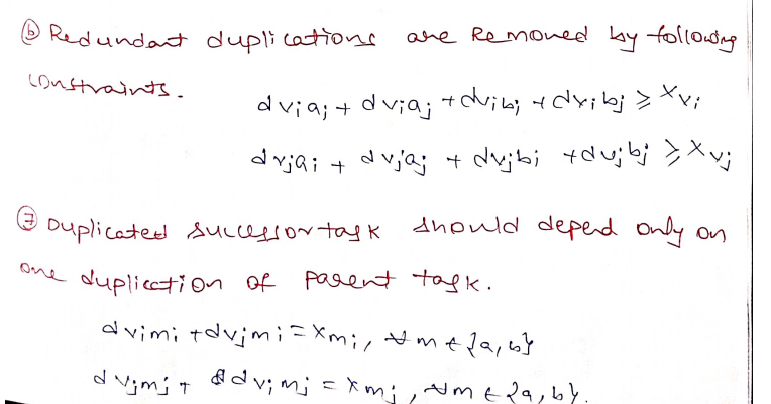 ⑥ Redundant duplications are Removed by following
constraints.
dviaj + dviaj + dvibj + dvibj ≥ xvi
dvjai + dvjaj + dvjbi + dvjbj ≥ xvj
⑦ Duplicated successor task should depend only on
one duplication of parent task.
dvimi + dvjmi = xmi, ∀m ∈ {a, b}
dvjmj + dvimj = xmj, ∀m ∈ {a, b}.